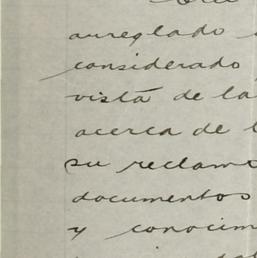 aureglado
considerado
vista de la
acerca de l
su reclamo
documentos
y conocim